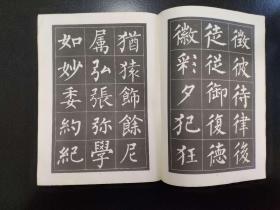 徵彼待律後
徒従御復德
徽彩夕犯狂
猶猿飾餘尼
属弘張弥學
如妙委約紀